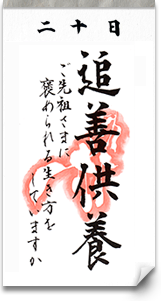 二十日
追善供養
ご先祖さまに
褒められる生き方を
していますか